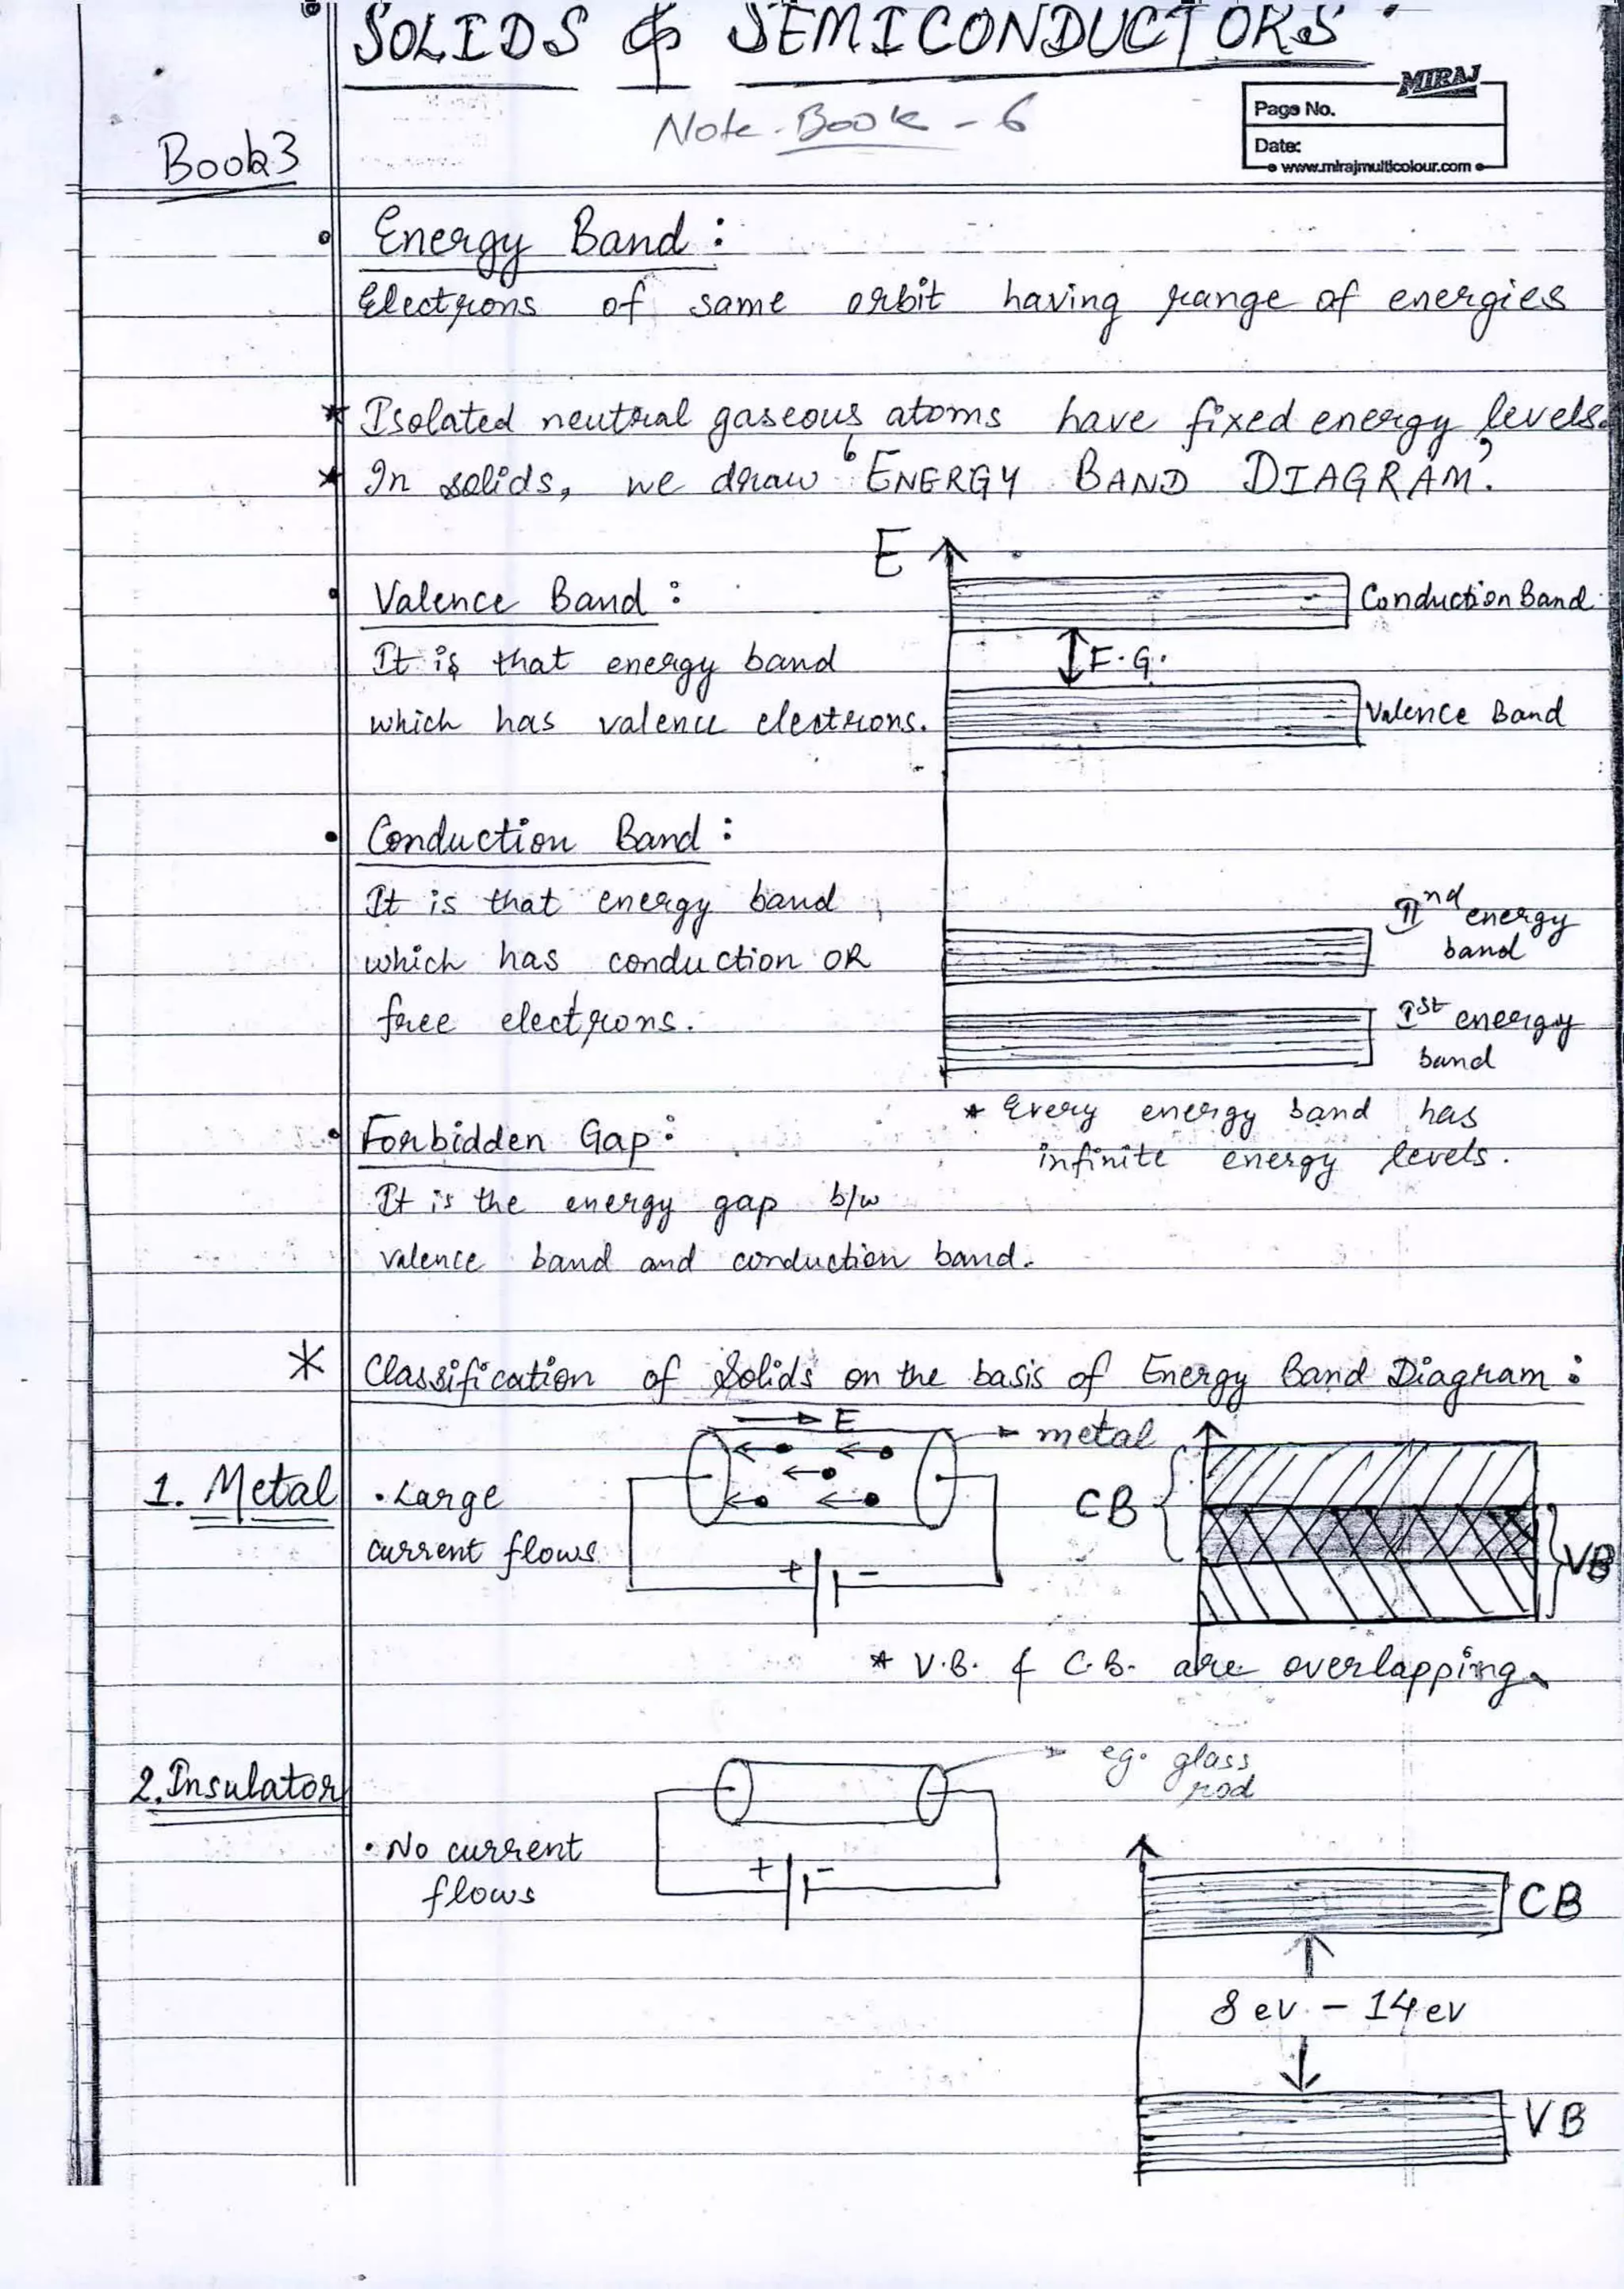 SOLIDS & SEMICONDUCTORS
Note-Book - 6
MIRAJ
Page No.
Date:
www.mirajmulticolour.com
Book3
Energy Band:
Electrons of same orbit having range of energies
* Isolated neutral gaseous atoms have fixed energy levels.
* In solids, we draw 'ENERGY BAND DIAGRAM'.
E
Valence Band:
Conduction Band
It is that energy band
F.G.
which has valence electrons.
Valence Band
Conduction Band:
It is that energy band
IInd energy
band
which has conduction OR
free electrons.
Ist energy
band
* Every energy band has
infinite energy levels.
Forbidden Gap:
It is the energy gap b/w
valence band and conduction band.
* Classification of Solids on the basis of Energy Band Diagram:
E
metal
1. Metal
• Large
current flows
+ -
CB
VB
* V.B. & C.B. are overlapping.
2. Insulator
eg. glass
rod
• No current
flows
+ -
CB
8 ev - 14 ev
VB